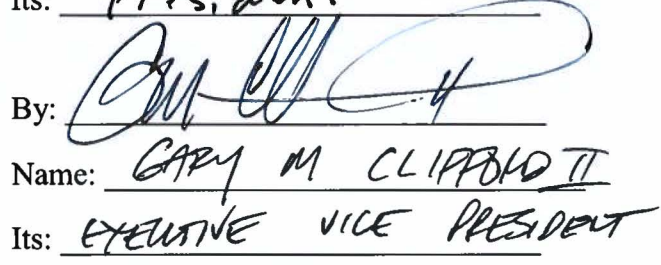 Its: President
By:
Name: GARY M CLIFFORD II
Its: EXECUTIVE VICE PRESIDENT